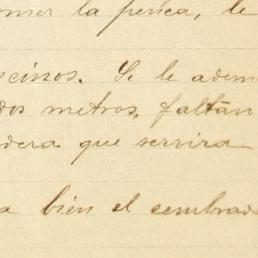 oner la penca, le
cinos. Se le adem
dos metros, faltan
dera que servira
a bien el cembrad